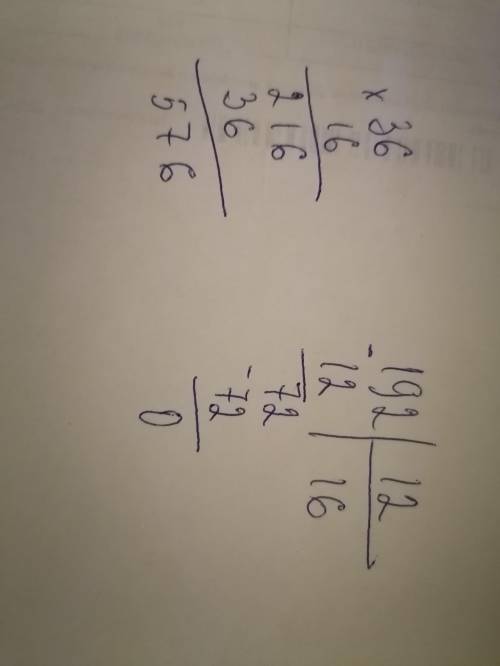 × 36
16
216
36
576
- 192 | 12
12 16
72
- 72
0